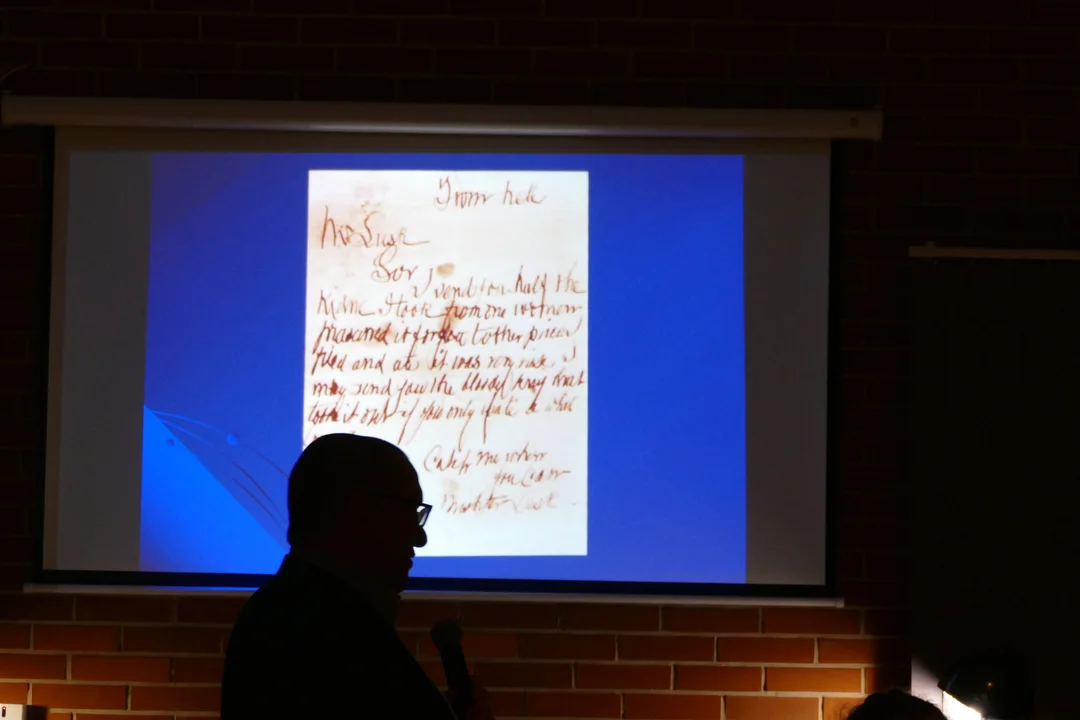 From hell
Mr Lusk
Sor
I send you half the
Kidne I took from one women
prasarved it for you tother piece I
fried and ate it was very nise I
may send you the bloody knif that
took it out if you only wate a whil
Catch me when
you can
Mishter Lusk